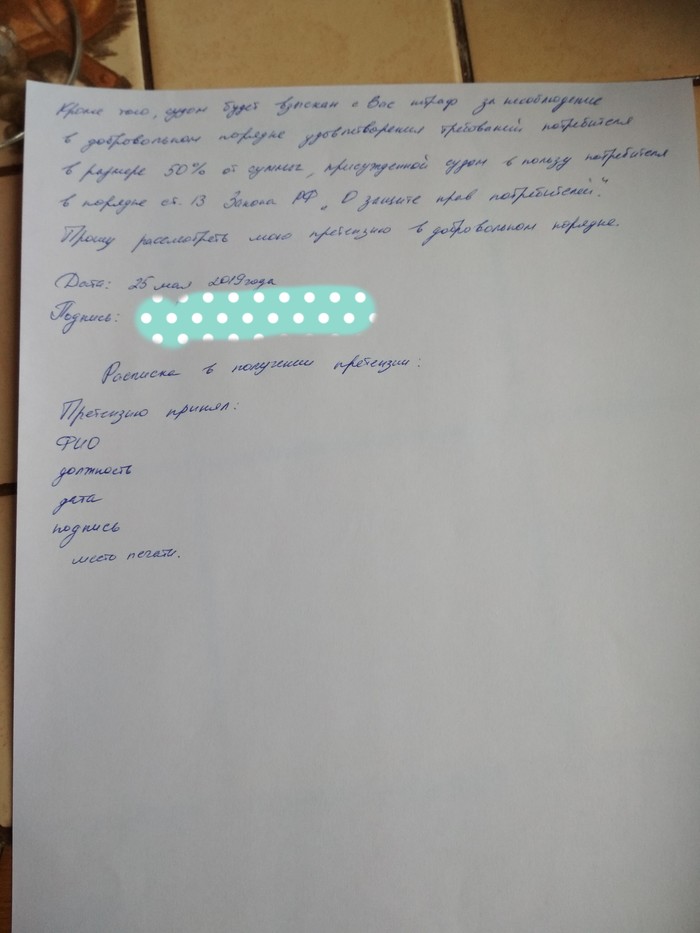 Кроме того, судом будет взыскан с Вас штраф за несоблюдение
в добровольном порядке удовлетворения требований потребителя
в размере 50% от суммы, присужденной судом в пользу потребителя
в порядке ст. 13 Закона РФ „О защите прав потребителей".
Прошу рассмотреть мою претензию в добровольном порядке.
Дата: 25 мая 2019 года
Подпись:
Расписка в получении претензии:
Претензию принял:
ФИО
должность
дата
подпись
место печати.